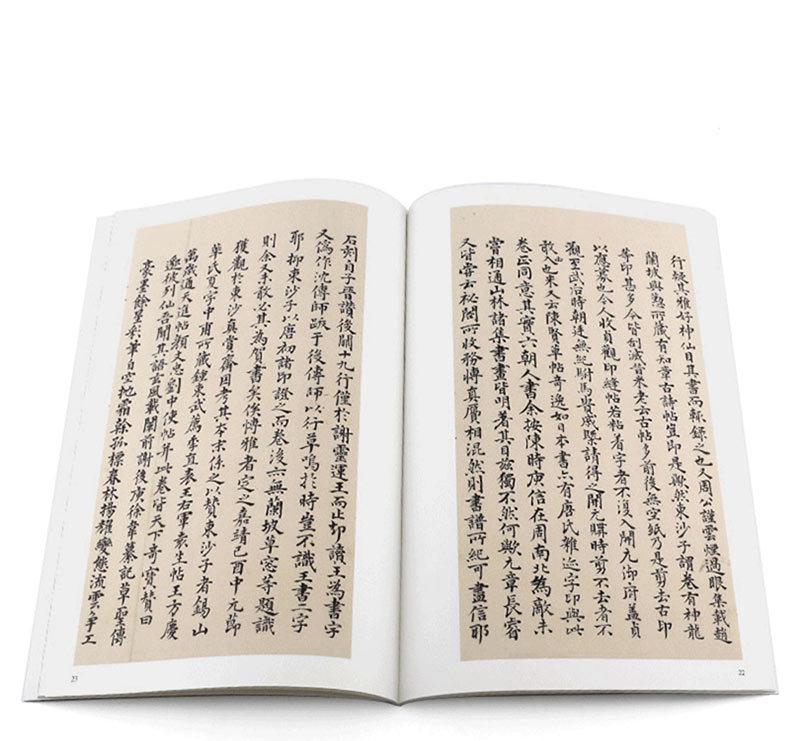 行疑其雅好神仙目其書而輒錄之也又周公謹雲煙過眼集載趙
蘭坡與懃所藏有知章古詩帖豈即是歟然東沙子謂卷有神龍
等印甚多今皆刮滅昔米老云古帖多前後無空紙乃是剪去古印
以應募也今人收貞觀印縫帖若粘着字者不復入開元御府蓋貞
觀至武后時朝廷無紀駙馬貴戚丐請得之開元購時剪不去者不
敢入也米又云陳賢草帖奇逸如日本書亦有唐氏雜迹字印與此
卷正同意其實六朝人書余按陳時庾信在周南北為敵未
嘗相通山林諸集書畫皆明著其目茲獨不然何歟元章長睿
又皆嘗云秘閣所收務博真贗相混然則書譜所紀可盡信耶
22
石刻自子晉讚後闕十九行僅於謝靈運王而止却讀王為書字
又偽作沈傳師跋于後傳師以行草鳴於時豈不識王書二字
耶抑東沙子以唐初諸印證之而卷後亦無蘭坡草窓等題識
則余又未敢必其為賀書矣俟博雅者定之嘉靖己酉中元節
獲觀於東沙真賞齋因考其本末係之以贊東沙子者錫山
華氏夏字中甫所藏鍾東武薦季直表王右軍袁生帖王方慶
萬歲通天進帖顏文忠劉中使帖并此卷皆天下奇寶贊曰
邈彼列仙吾聞其語玄風載闡前謝後庾徐韋纂記草聖傳
豪墨餘星采筆自空地霜幹孤標春林揚耀變態流雲年工
23